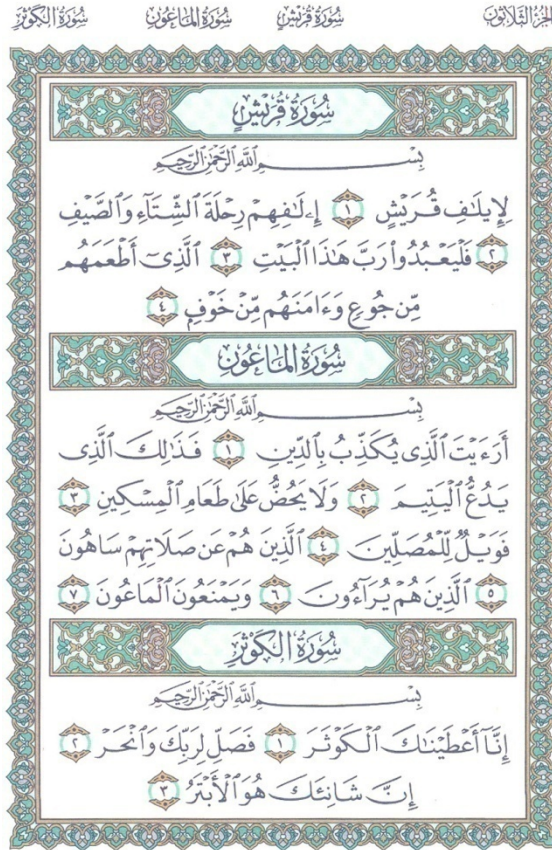 الجزء الثلاثون سورة قريش سورة الماعون سورة الكوثر
سُورَةُ قُرَيْشٍ
بِسْمِ ٱللَّهِ ٱلرَّحْمَٰنِ ٱلرَّحِيمِ
لِإِيلَٰفِ قُرَيْشٍ ١ إِۦلَٰفِهِمْ رِحْلَةَ ٱلشِّتَآءِ وَٱلصَّيْفِ
٢ فَلْيَعْبُدُوا۟ رَبَّ هَٰذَا ٱلْبَيْتِ ٣ ٱلَّذِىٓ أَطْعَمَهُم
مِّن جُوعٍ وَءَامَنَهُم مِّنْ خَوْفٍۭ ٤
سُورَةُ المَاعُونِ
بِسْمِ ٱللَّهِ ٱلرَّحْمَٰنِ ٱلرَّحِيمِ
أَرَءَيْتَ ٱلَّذِى يُكَذِّبُ بِٱلدِّينِ ١ فَذَٰلِكَ ٱلَّذِى
يَدُعُّ ٱلْيَتِيمَ ٢ وَلَا يَحُضُّ عَلَىٰ طَعَامِ ٱلْمِسْكِينِ ٣
فَوَيْلٌ لِّلْمُصَلِّينَ ٤ ٱلَّذِينَ هُمْ عَن صَلَاتِهِمْ سَاهُونَ
٥ ٱلَّذِينَ هُمْ يُرَآءُونَ ٦ وَيَمْنَعُونَ ٱلْمَاعُونَ ٧
سُورَةُ الكَوْثَرِ
بِسْمِ ٱللَّهِ ٱلرَّحْمَٰنِ ٱلرَّحِيمِ
إِنَّآ أَعْطَيْنَٰكَ ٱلْكَوْثَرَ ١ فَصَلِّ لِرَبِّكَ وَٱنْحَرْ ٢
إِنَّ شَانِئَكَ هُوَ ٱلْأَبْتَرُ ٣